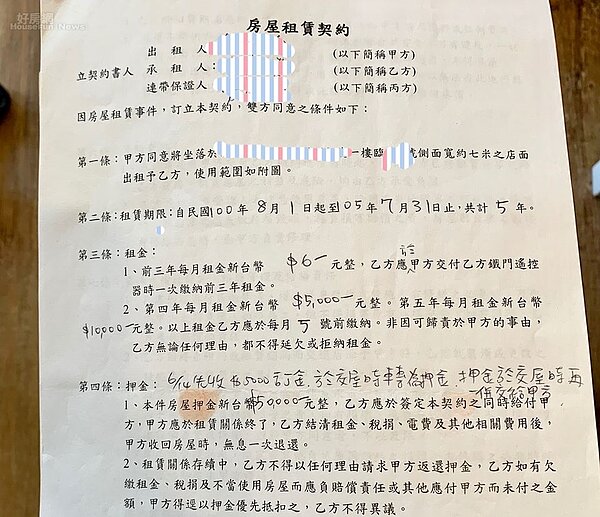 好房網
HouseFun News
房屋租賃契約
出租人 (以下簡稱甲方)
立契約書人 承租人： (以下簡稱乙方)
連帶保證人 (以下簡稱丙方)
因房屋租賃事件，訂立本契約，雙方同意之條件如下：
第一條：甲方同意將坐落於 一樓臨 號側面寬約七米之店面
出租予乙方，使用範圍如附圖。
第二條：租賃期限：自民國100年8月1日起至05年7月31日止，共計5年。
第三條：租金：
於
1、前三年每月租金新台幣 $6一元整，乙方應甲方交付乙方鐵門遙控
器時一次繳納前三年租金。
2、第四年每月租金新台幣 $5,000一元整。第五年每月租金新台幣
$10,000一元整。以上租金乙方應於每月5號前繳納。非因可歸責於甲方的事由，
乙方無論任何理由，都不得延欠或拒納租金。
第四條：押金：6/14先收 5,000訂金，於交屋時轉為押金，押金於交屋時再
一併交給甲方
1、本件房屋押金新台幣$50,000元整，乙方應於簽定本契約之同時給付甲
方，甲方應於租賃關係終了，乙方結清租金、稅捐、電費及其他相關費用後，
甲方收回房屋時，無息一次退還。
2、租賃關係存續中，乙方不得以任何理由請求甲方返還押金，乙方如有欠
繳租金、稅捐及不當使用房屋而應負賠償責任或其他應付甲方而未付之金
額，甲方得逕以押金優先抵扣之，乙方不得異議。